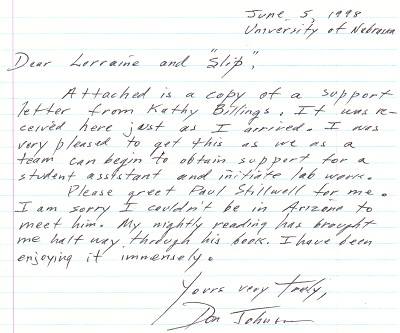 June 5, 1998
University of Nebraska
Dear Lorraine and "Slip",
Attached is a copy of a support
letter from Kathy Billings. It was re-
ceived here just as I arrived. I was
very pleased to get this as we as a
team can begin to obtain support for a
student assistant and initiate lab work.
Please greet Paul Stillwell for me.
I am sorry I couldn't be in Arizona to
meet him. My nightly reading has brought
me half way through his book. I have been
enjoying it immensely.
Yours very truly,
Don Johnson